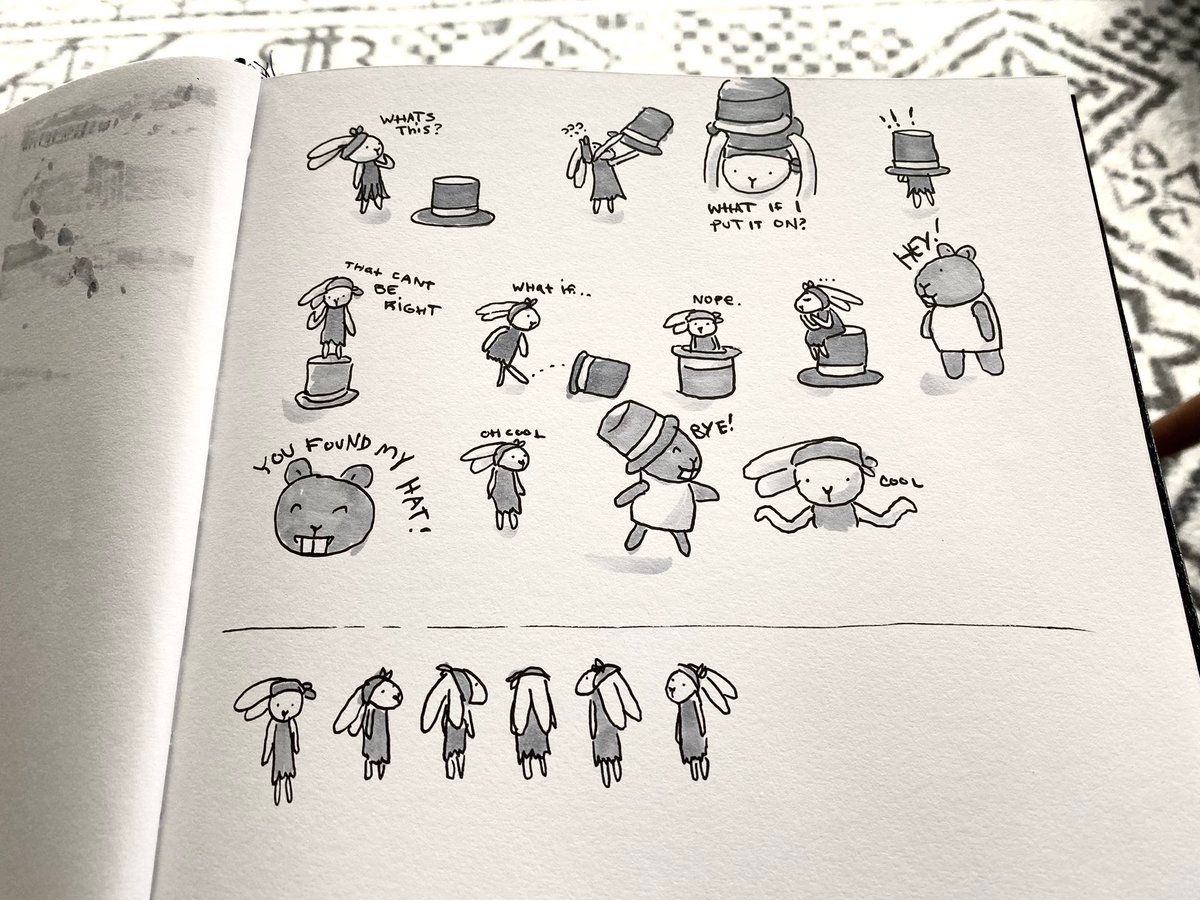 WHATS
THIS?
???
WHAT IF I
PUT IT ON?
!!!
THAT CANT
BE
RIGHT
WHAT IF...
NOPE.
...
HEY!
YOU FOUND MY HAT!
OH COOL
BYE!
COOL